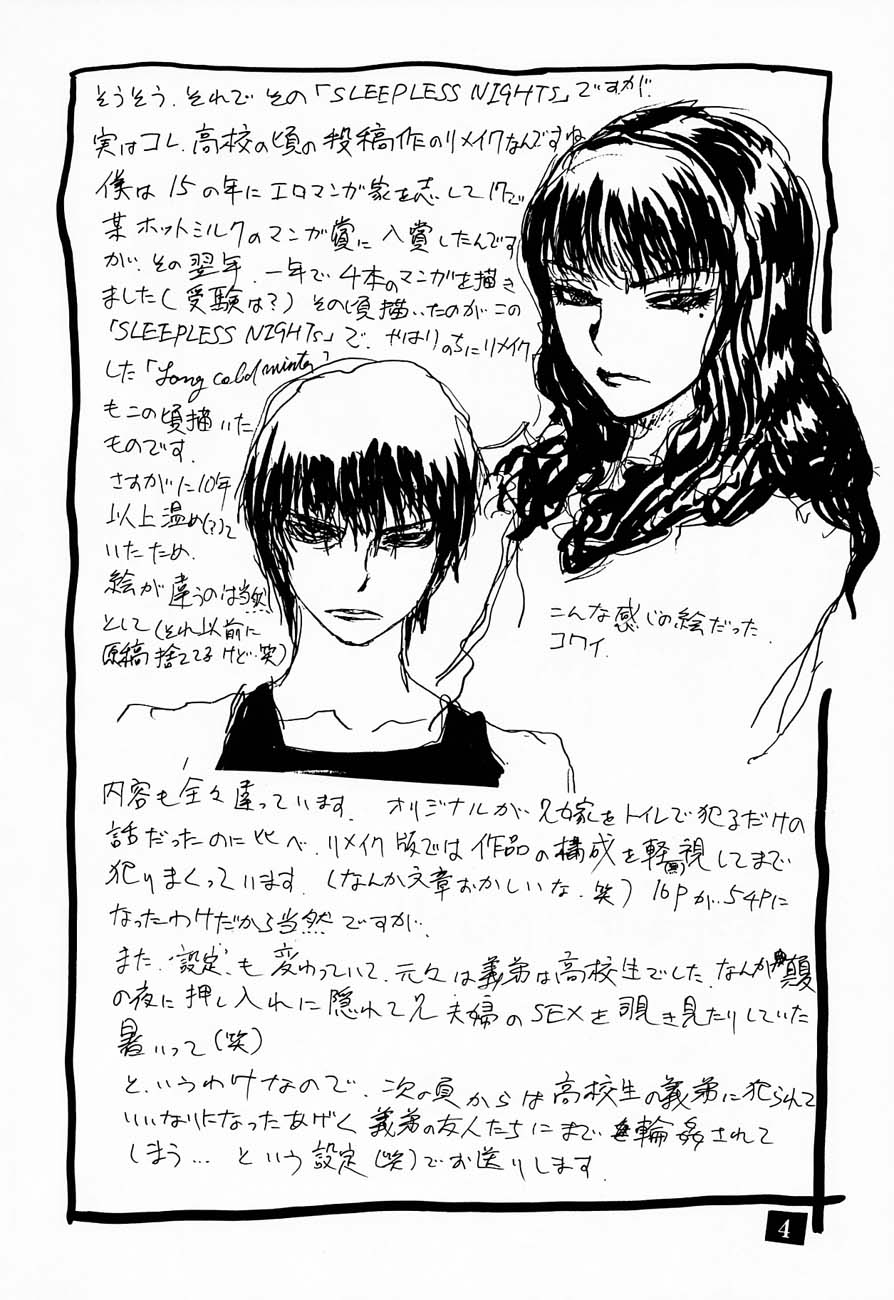 そうそう、それでその「SLEEPLESS NIGHTS」ですが
実はコレ、高校の頃の投稿作のリメイクなんですね
僕は15の年にエロマンガ家を志して17で
某ホットミルクのマンガ賞に入賞したんです
が、その翌年、一年で4本のマンガを描き
ました(受験は?) その頃描いたのがこの
「SLEEPLESS NIGHTS」で、やはりのちにリメイク
した「Long cold winter」
もこの頃描いた
ものです。
さすがに10年
以上温め(?)て
いたため、
絵が違うのは当然
として(それ以前に
原稿捨ててるけど・笑)
こんな感じの絵だった。
コワイ。
内容も全々違っています。 オリジナルが兄嫁をトイレで犯るだけの
話だったのに比べ、リメイク版では作品の構成を軽(無)視してまで
犯りまくっています。(なんか文章おかしいな・笑) 16Pが54Pに
なったわけだから当然ですが。
また、設定も変わっていて、元々は義弟は高校生でした。なんか真夏
の夜に押し入れに隠れて兄夫婦のSEXを覗き見たりしていた
暑いって(笑)
と、いうわけなので、次の頁からは高校生の義弟に犯られて
いいなりになったあげく義弟の友人たちにまで輪姦されて
しまう… という設定(笑)でお送りします。
4